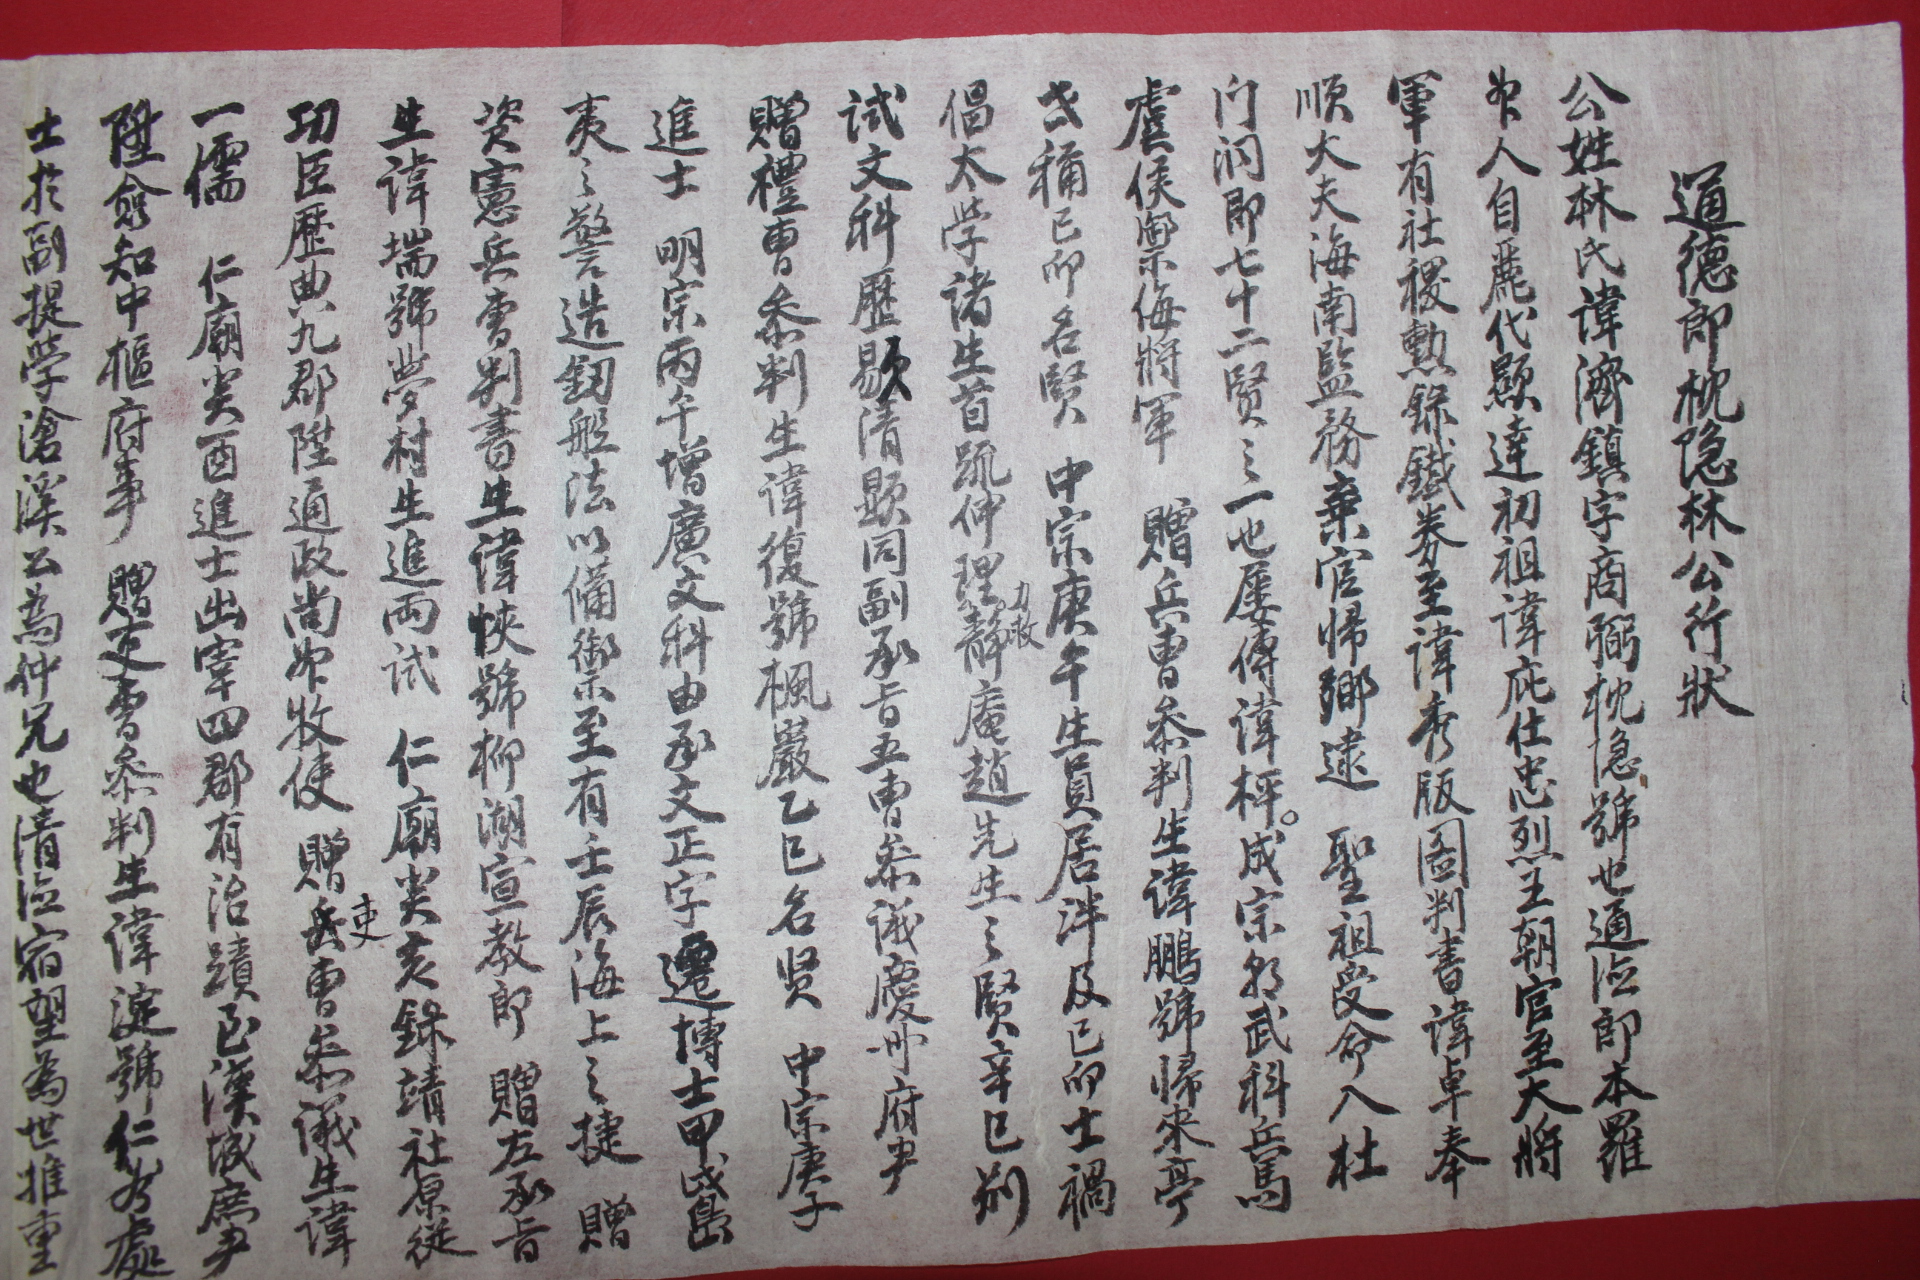 通德郎枕隐林公行狀
公姓林氏諱濟鎮字商弼枕隐號也通德郎本羅
州人自麗代顯達初祖諱庇仕忠烈王朝官至大將
軍有社稷勲錄鐵券至諱秀版图判書諱卓奉
順大夫海南監務棄官帰鄉逮 聖祖受命入杜
门洞即七十二贤之一也屡傳諱枰成宗朝武科兵馬
虞侯禦侮將軍 贈兵曹叅判生諱鵬號帰來亭
世稱己卯名賢 中宗庚午生員居泮及己卯士禍
倡太学諸生首疏伸理力救静庵趙先生之賢辛巳别
試文科歷敭清顯同副承旨五曹叅議慶州府尹
贈禮曹叅判生諱復號楓巖乙巳名贤 中宗庚子
進士 明宗丙午增廣文科由承文正字遷博士甲
夷之警造釰船法以備禦至有壬辰海上之捷 贈
資憲兵曹判書生諱㤿號柳湖宣教郎 贈左承旨
生諱㙐號夢村生進両试 仁廟癸亥錄靖社原從
功臣歷典九郡陞通政尚州牧使 贈兵吏曹叅議生諱
一儒 仁廟癸酉進士出宰四郡有治蹟至漢城庶尹
陞僉知中樞府事 贈吏曹叅判生諱㴱號仁處
士於副提学滄溪公為仲兄也清德宿望為世推重